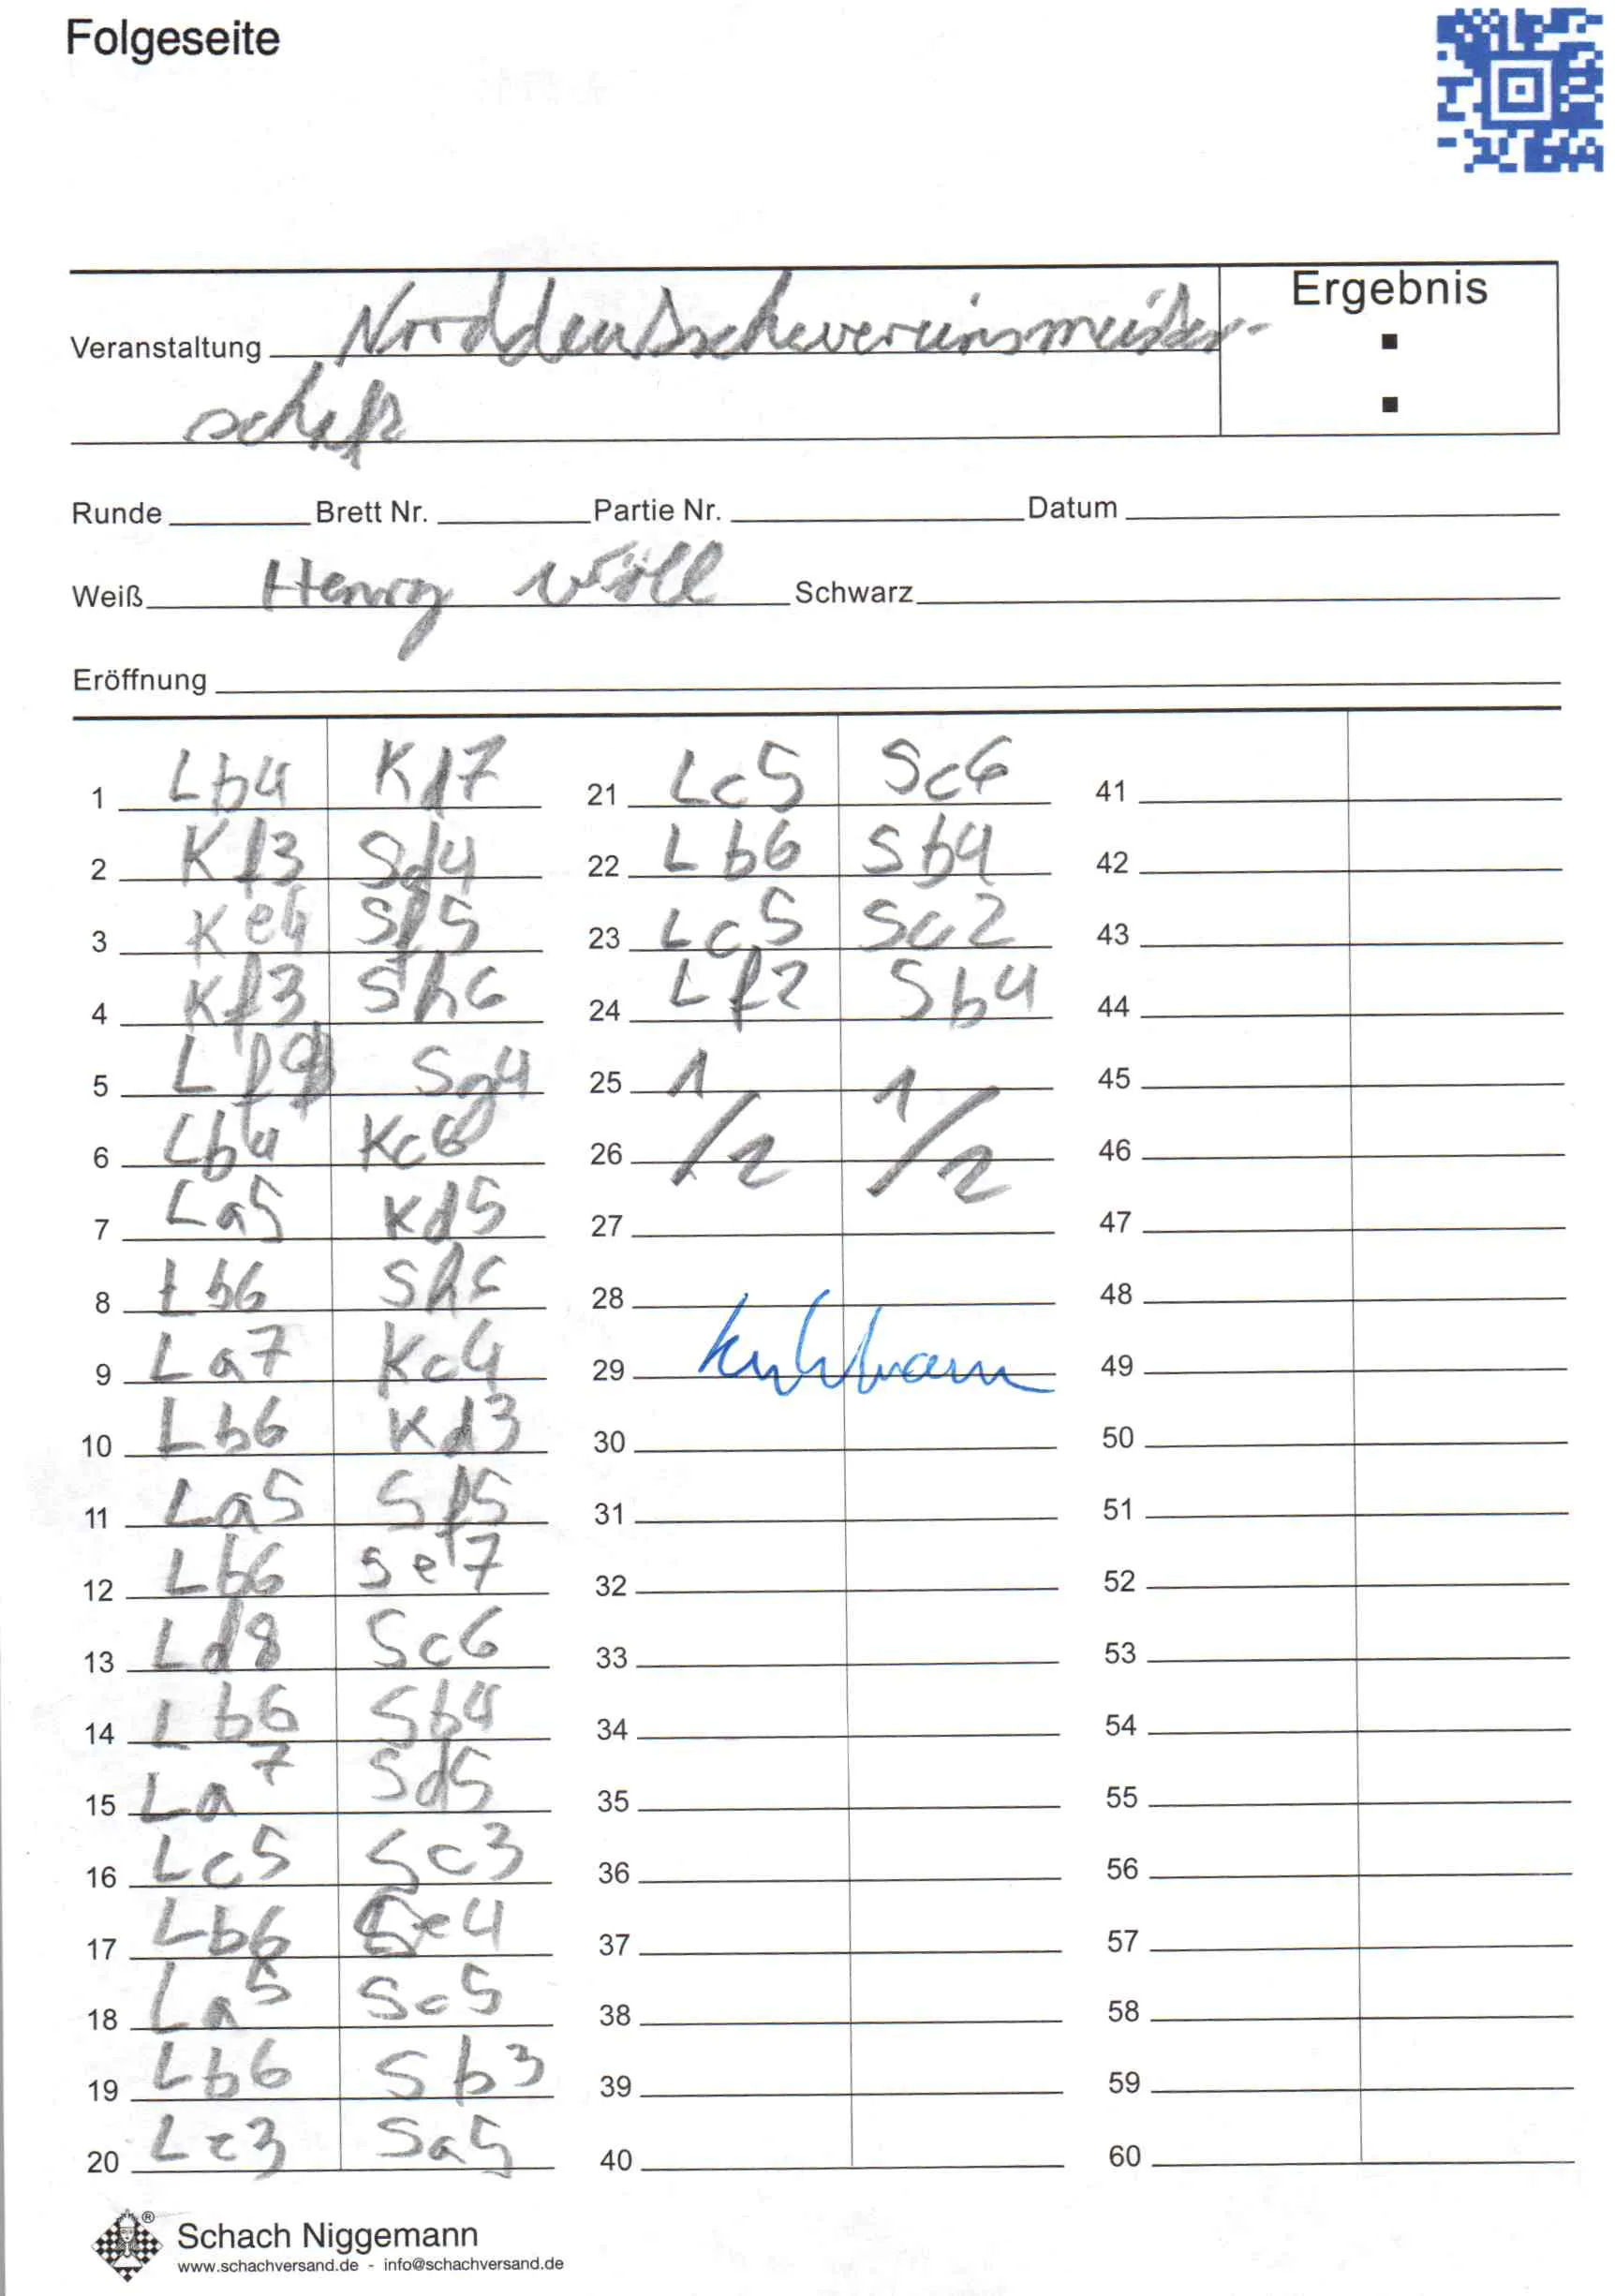 Folgeseite
Ergebnis
Veranstaltung Norddeutschevereinsmeister-
schaft
Runde Brett Nr. Partie Nr. Datum
Weiß Henry Schwarz
Eröffnung
1 Lb4 Kd7
2 Kf3 Sd4
3 Ke4 Sf5
4 Kf3 Sh6
5 Sg4
6 Lb4 Kc6
7 La5 Kd5
8 Lb6 Sh6
9 La7 Kc4
10 Lb6 Kd3
11 La5 Sf5
12 Lb6 Se7
13 Ld8 Sc6
14 Lb6 Sb4
15 La7 Sd5
16 Lc5 Sc3
17 Lb6 Se4
18 La5 Sc5
19 Lb6 Sb3
20 Le3 Sa5
21 Lc5 Sc6
22 Lb6 Sb4
23 Lc5 Sc2
24 Lf2 Sb4
25 1 1
26 /2 /2
27
28
29 Kuhlmann
30
31
32
33
34
35
36
37
38
39
40
41
42
43
44
45
46
47
48
49
50
51
52
53
54
55
56
57
58
59
60
Schach Niggemann
www.schachversand.de - info@schachversand.de